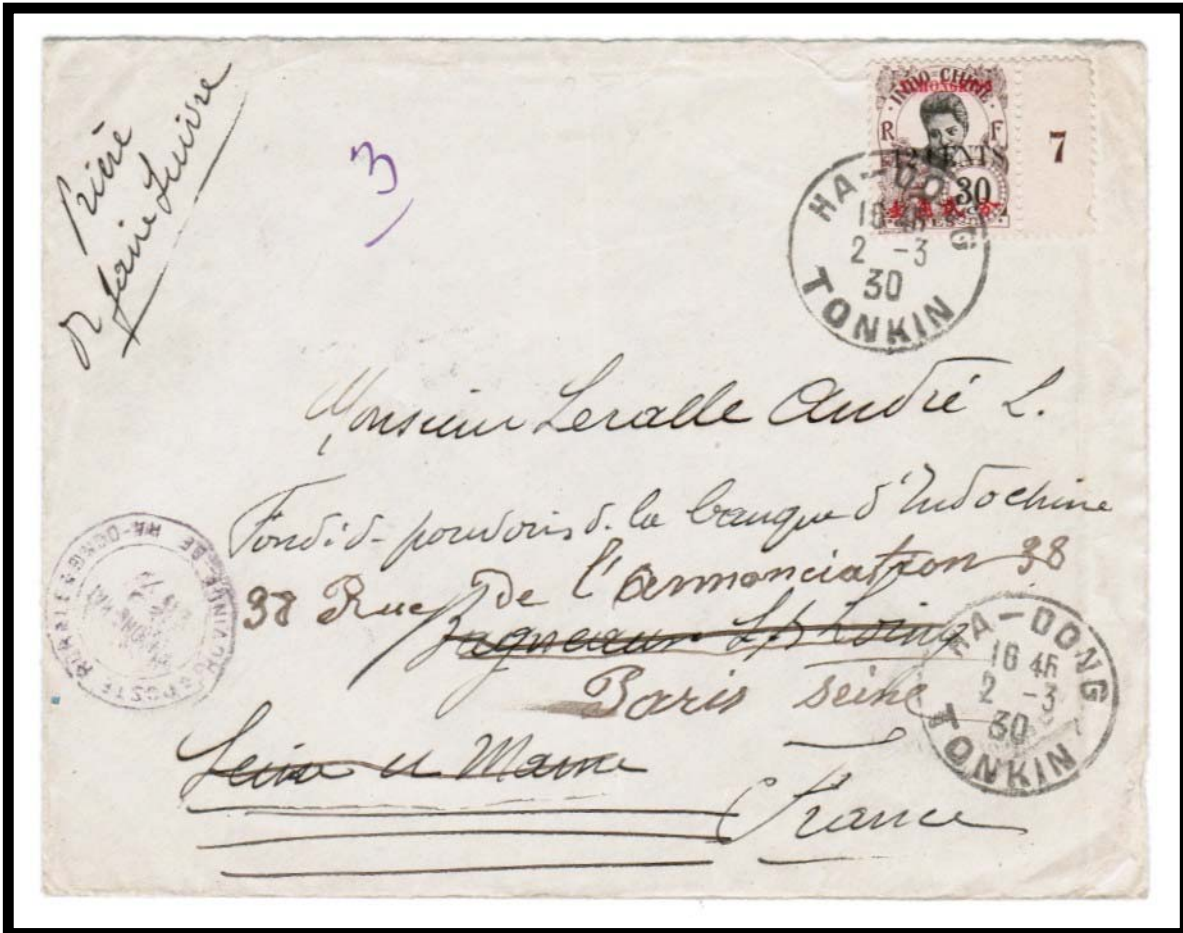 Prière
de faire suivre
3
INDO-CHINE
HONGKONG
R F
12 CENTS
30
7
HA-DONG
16 45
2 -3
30
TONKIN
Monsieur Leralle André L.
Fondé d. pouvoirs d. la banque d'Indochine
38 Rue De l'annonciation 38
Bagneaux S/ Loing
Paris seine
Seine et Marne
France
HA-DONG
16 45
2 -3
30
TONKIN
POSTE RURALE
PROVINCE DE HA-DONG